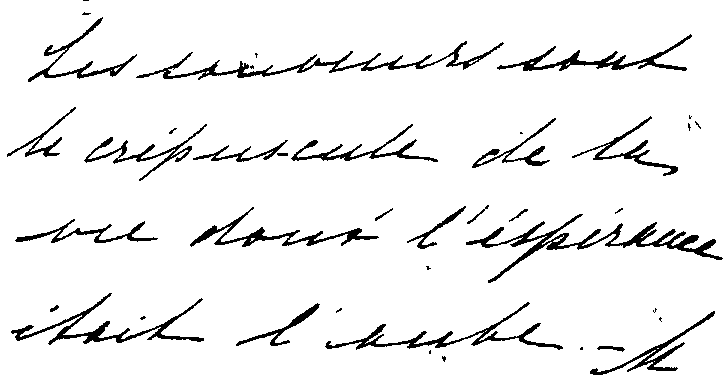 Les souvenirs sont
le crépuscule de la
vie dont l'éspérance
était l'aube. - M